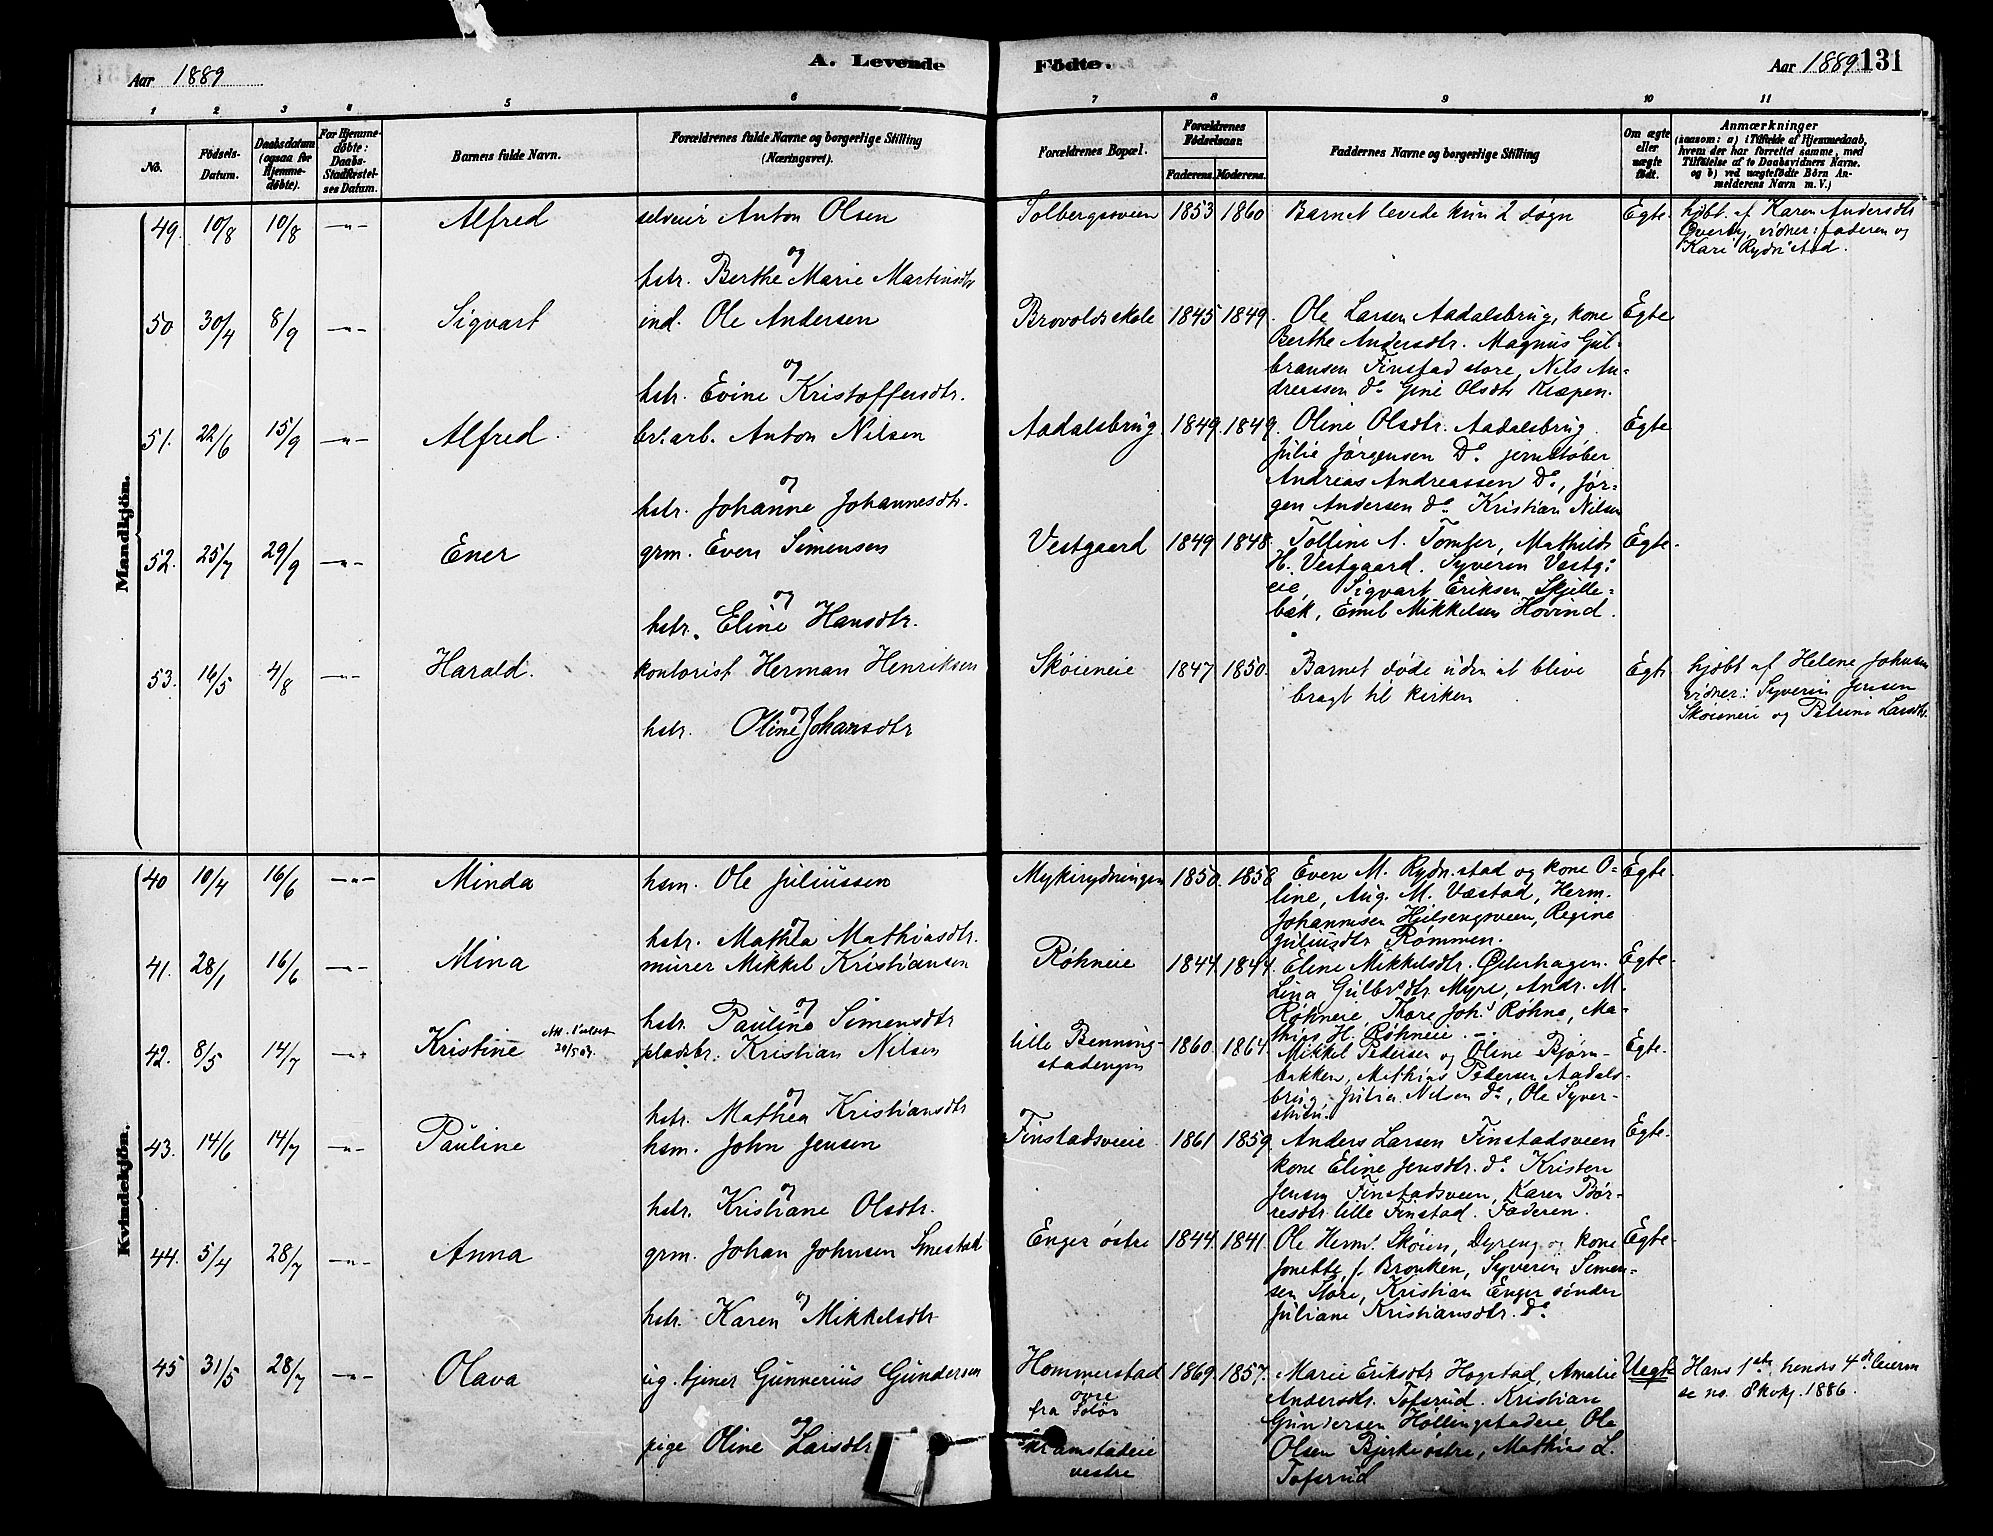 Aar 1889
A. Levende
Födte.
Aar 1889 131
1 2 3 4 5 6 7 8 9 10 11
No.
Födsels-Datum.
Daabsdatum (ogsaa for Hjemmedöbte).
For Hjemmedöbte: Daabs-Stadfæstelses Datum.
Barnets fulde Navn.
Forældrenes fulde Navne og borgerlige Stilling (Næringsvei).
Forældrenes Bopæl.
Forældrenes Födselsaar.
Faderens. Moderens.
Faddernes Navne og borgerlige Stilling
Om ægte eller uægte födt.
Anmærkninger
(saasom: a) i Tilfælde af Hjemmedaab, hvem der har forrettet samme, med Tilföielse af to Daabsvidners Navne. og b) ved uægtefödte Börn Anmelderens Navn m. V.)
Mandkjön.
49. 10/8 10/8 -"- Alfred selveier Anton Olsen Solbergsveen 1853 1860 Barnet levede kun 2 døgn Egte. hjbt. af Karen Andersdtr
Overby, vidner: faderen og
Kari Rydn.stad.
og
hstr. Berthe Marie Martinsdtr
50 30/4 8/9 -"- Sigvart ind. Ole Andersen Brovoldsskole 1845 1849. Ole Larsen Aadalsbrug, kone Egte
Berthe Andersdtr. Magnus Gul-
og bransen Finstad store, Nils An-
hstr. Evine Kristoffersdtr. dreassen do Gine Olsdtr Kræpen.
51. 22/6 15/9 -"- Alfred. br.arb. Anton Nilsen Aadalsbrug 1849. 1849. Oline Olsdtr. Aadalsbrug. Egte
Julie Jørgensen Do. jernstøber
og Andreas Andreassen Do, Jør-
hstr. Johanne Johannesdtr. gen Andersen do Kristian Nilsen
52. 25/7 29/9 -"- Ener grm. Even Simensen Vestgaard 1849 1848. Tolline A. Tomter, Mathilde Egte.
H. Vestgaard. Syverin Vestg:
og eie, Sigvart Eriksen Skjille-
hstr. Eline Hansdtr. bæk, Emil Mikkelsen Hovind.
53. 16/5 4/8 -"- Harald. kontorist Herman Henriksen Skøieneie 1847 1850. Barnet døde uden at blive Egte hjdbt af Helene Johnsen
bragt til kirken vidner: Syverin Jensen
Skøieneie og Petrine Larsdtr.
og
hstr. Oline Johansdtr
Kvindekjön.
40 10/4 16/6 -"- Minda hsm. Ole Juliussen Mykirydningen 1850. 1858 Even M. Rydn.stad og kone O- Egte.
line, Aug. M. Væstad, Herm.
og Johannesen Hjelsengsveen, Regine
hstr. Mathea Mathiasdtr. Juliusdtr Rømmen.
41. 28/1 16/6 -"- Mina murer Mikkel Kristiansen Røhneie 1844 1844. Eline Mikkelsdtr. Øierhagen. Egte.
Lina Gulbrsdtr. Myre, Andr. M.
og Røhneie, Thore Joh.s Røhne, Ma-
hstr. Pauline Simensdtr thias H. Røhneie
42. 8/5 14/7 -"- Kristine 29/5 04. pladsbr. Kristian Nilsen lille Benning-
stadengen 1860 1864. Mikkel Pedersen og Oline Bjørn- Egte.
bakken, Mathias Pedersen Aadals-
og brug, Julia Nilsen do, Ole Syver-
hstr. Mathea Kristiansdtr
43. 14/6 14/7 -"- Pauline hsm. John Jensen Finstadsveie 1861 1859. Anders Larsen Finstadsveen Egte.
kone Eline Jensdtr. do Kristen
og Jensen Finstadsveen, Karen Bør-
hstr. Kristiane Olsdtr. resdtr. lille Finstad. Faderen.
44. 5/4 28/7 -"- Anna grm. Johan Johnsen Smestad Enger østre 1844. 1841. Ole Herm. Skøien, Dyreng og kone Egte.
Jonette, f. Bronken, Syverin Simen-
og sen Store, Kristian Enger søndre
hstr. Karen Mikkelsdtr Juliane Kristiansdtr. do
45 31/5 28/7 -"- Olava ug. tjener Gunnerius Gundersen Hommerstad
øvre
fra Solør 1869. 1857. Marie Eriksdtr Hogstad, Amalie Uegte Hans 1ste, hendes 4de leierm.
Andersdtr. Tofsrud. Kristian se no. 8 kvkj. 1886.
og Gundersen Hollingstadeie, Ole
pige Oline Larsdtr Kramstadeie Olsen Bjerke østre, Mathias L.
vestre Tofsrud